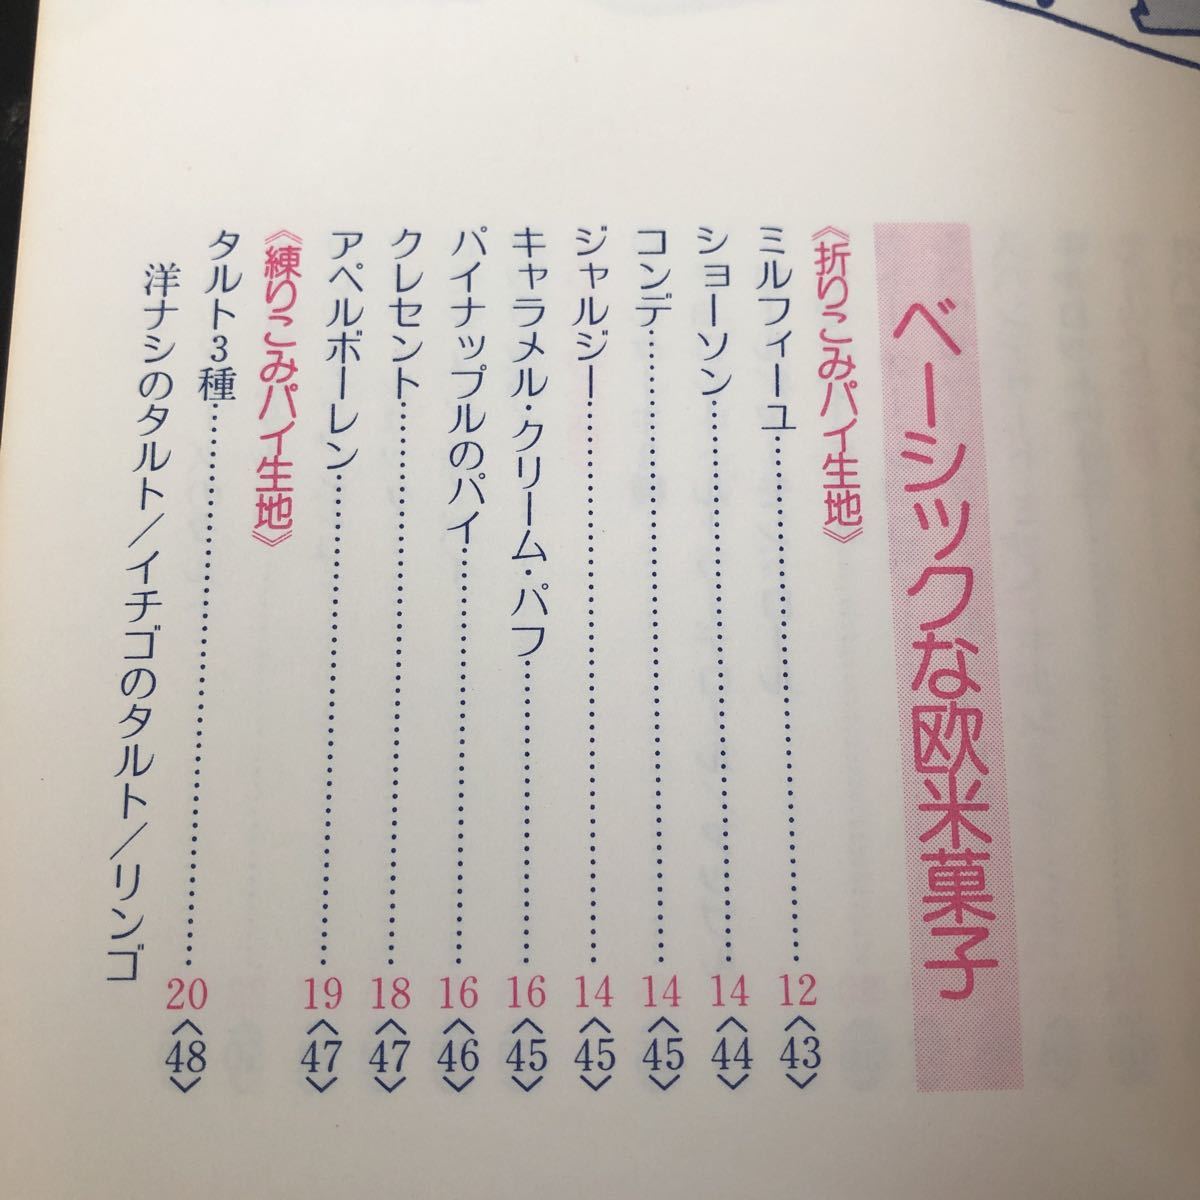 ベーシックな欧米菓子
《折りこみパイ生地》
ミルフィーユ…………………………12〈43〉
ショーソン…………………………14〈44〉
コンデ…………………………14〈45〉
ジャルジー…………………………14〈45〉
キャラメル・クリーム・パフ…………………………16〈45〉
パイナップルのパイ…………………………16〈46〉
クレセント…………………………18〈47〉
アペルボーレン…………………………19〈47〉
《練りこみパイ生地》
タルト3種…………………………20〈48〉
洋ナシのタルト／イチゴのタルト／リンゴ